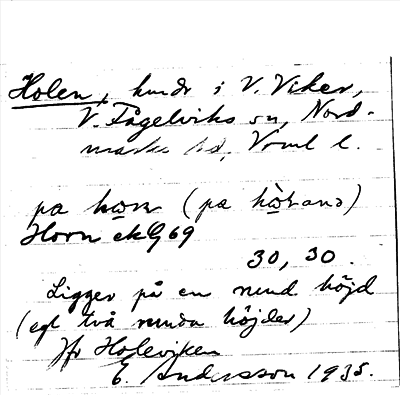 Holen, hmdr i V. Viker,
V. Fågelviks sn, Nord-
marks hd, Vrml l.
pa
Horn ekG 69
30, 30.
Ligger på en rund höjd
(egl två runda höjder)
Jfr Holeviken
E. Andersson 1935.